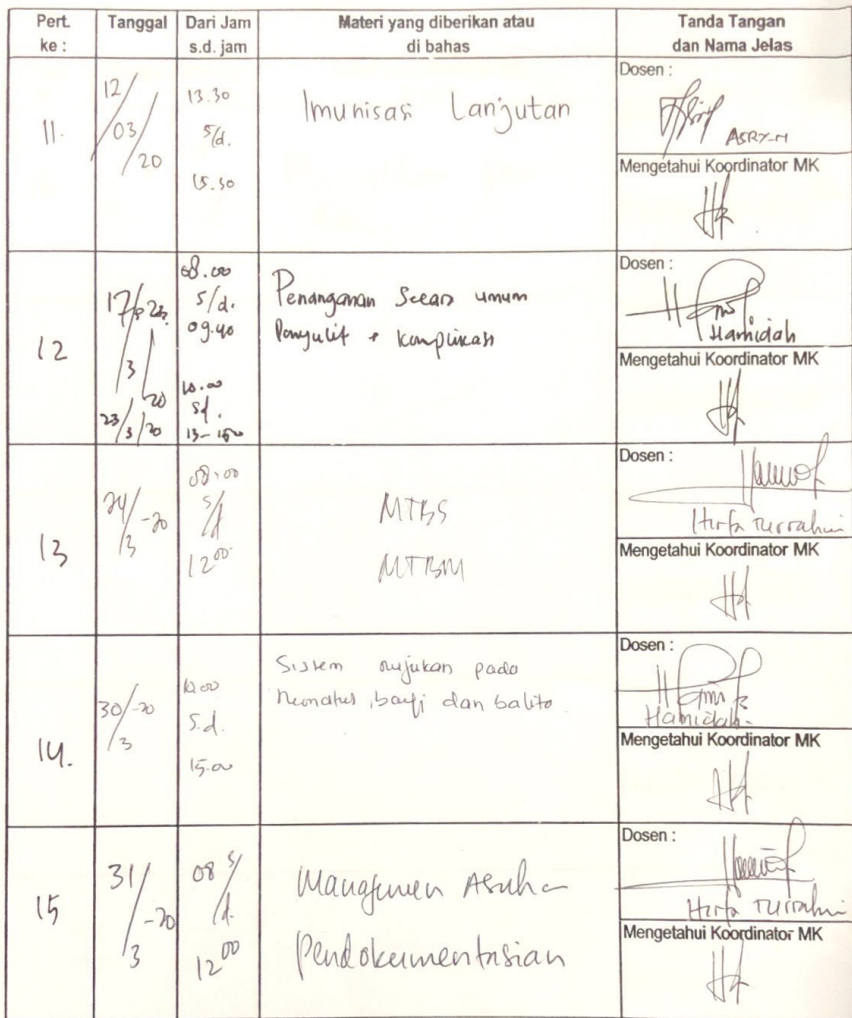 Pert. ke :
Tanggal
Dari Jam s.d. jam
Materi yang diberikan atau di bahas
Tanda Tangan dan Nama Jelas
11.
12/03/20
13.30
s/d.
15.30
Imunisasi Lanjutan
Dosen :
ASRY-M
Mengetahui Koordinator MK
12
17/3 20
23/3/20
08.00
s/d.
09.40
10.00
sd.
Penanganan Secara umum
Penyulit + komplikasi
Dosen :
Hamidah
Mengetahui Koordinator MK
13
24/3-20
08.00
s/d
12.00
MTBS
MTBM
Dosen :
Hirfa Turrahmi
Mengetahui Koordinator MK
14.
30/3-20
10.00
s.d.
15.00
Sistem rujukan pada
Neonatus, bayi dan balita
Dosen :
Hamidah.
Mengetahui Koordinator MK
15
31/3-20
08 s/d.
12.00
Manajemen Asuha
Pendokumentasian
Dosen :
Hirfa Turrahmi
Mengetahui Koordinator MK